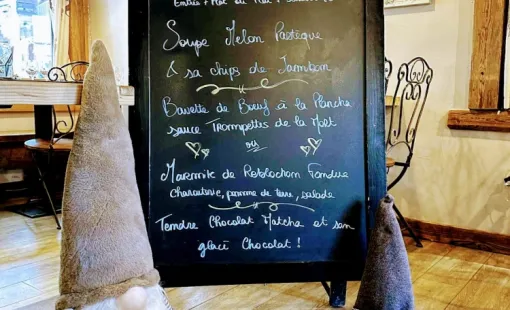 Entrée + Plat ou Plat + Dessert
Soupe Melon Pastèque
& sa chips de Jambon
Bavette de Boeuf à la Plancha
sauce Trompettes de la Mort
ou
Marmite de Reblochon Fondue
Charcuterie, pomme de terre, salade
Tendre Chocolat Matcha et son
glacé Chocolat !